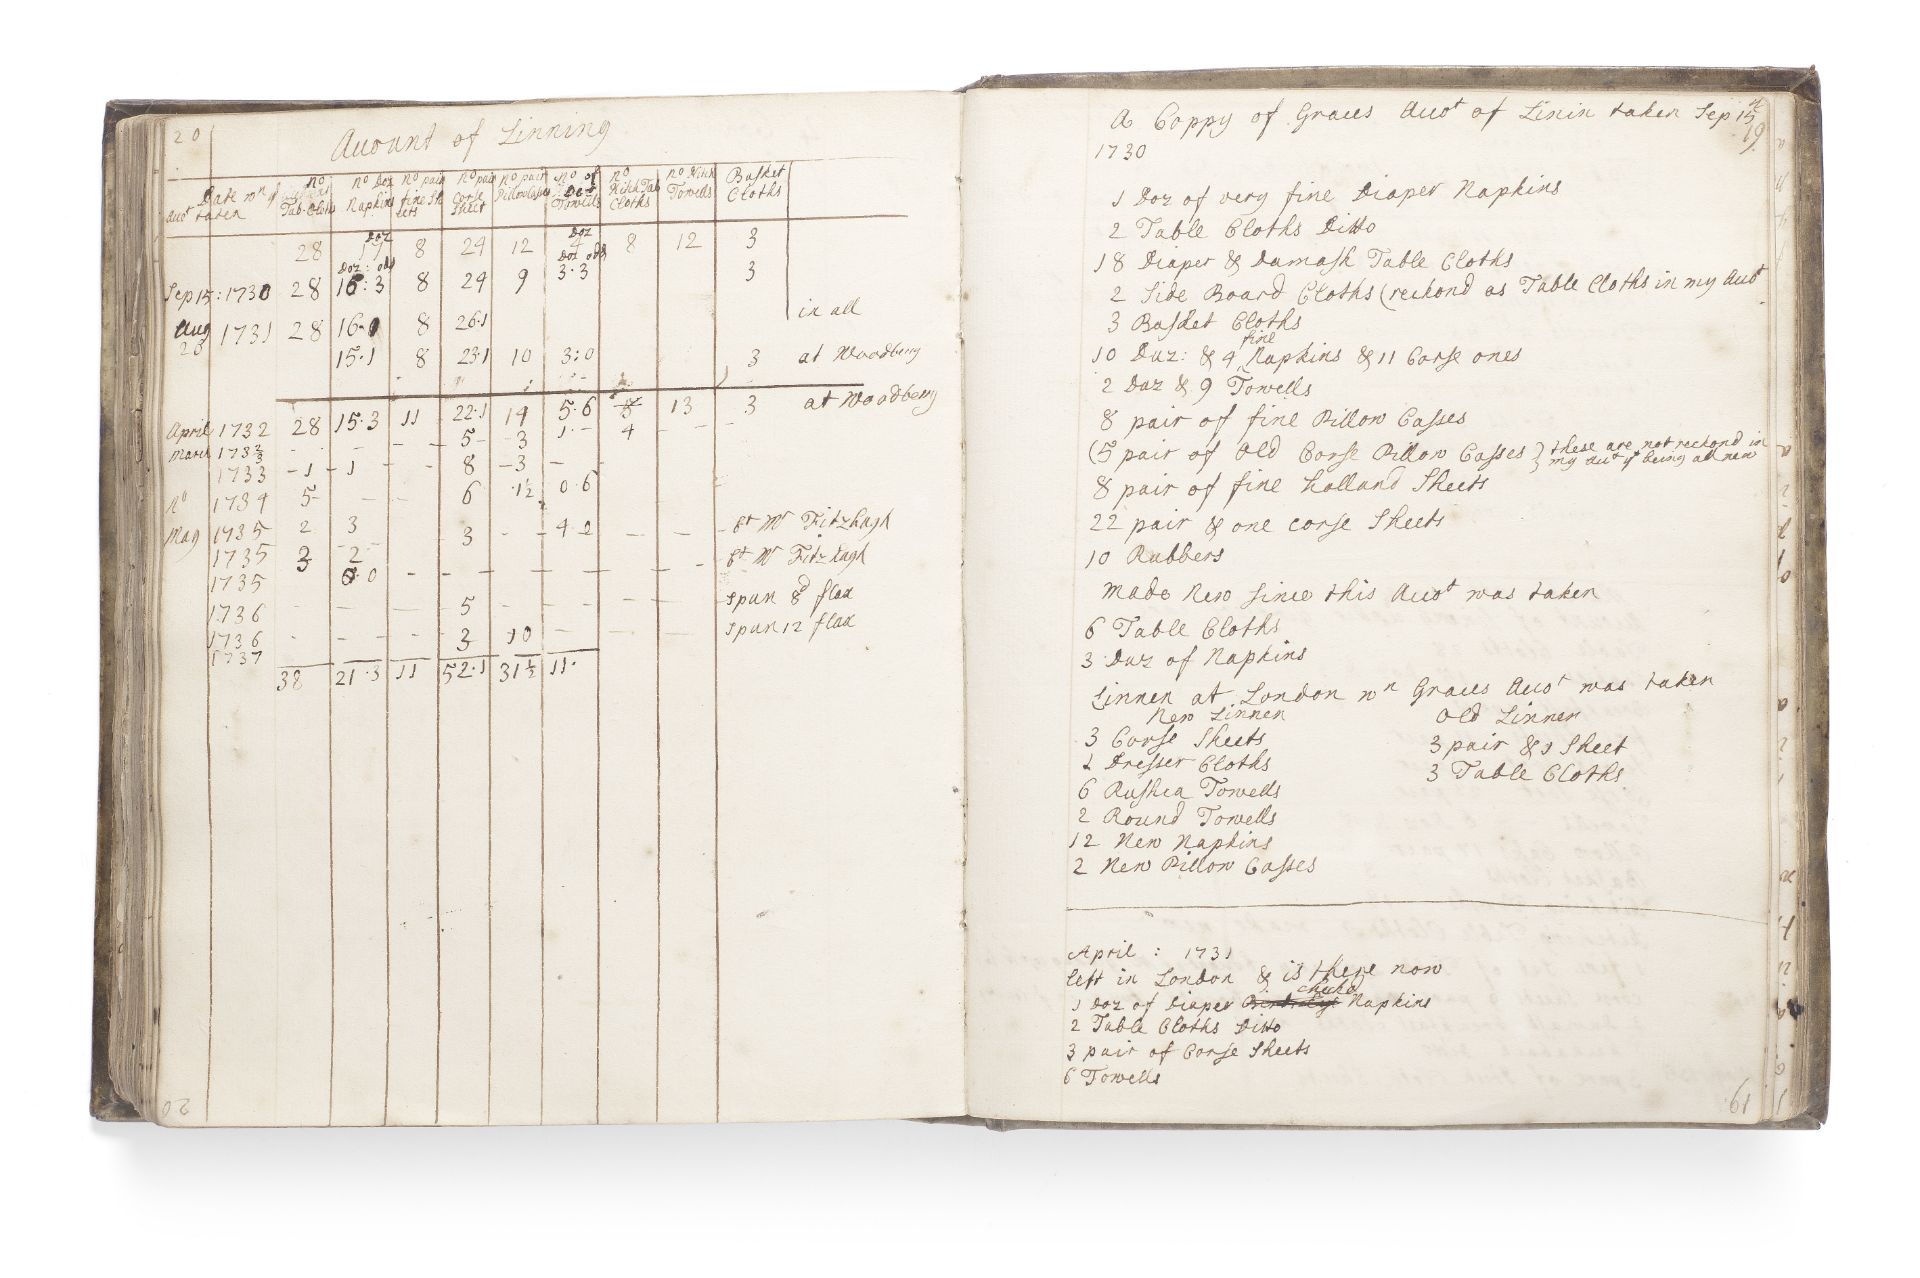 20
Account of Linning
Date wn ye Acct taken | no Tab-Cloths | no Doz Napkins | no pair fine Sheets | no pair Corse Sheet | no pair Pillowbers | no of Doz Towells | no Kitch Tab Cloths | no Kitch Towells | Basket Cloths
28 | Doz 17 | 8 | 24 | 12 | Doz 4 | 8 | 12 | 3
Sep 15 : 1730 | 28 | Doz : ods 16 : 3 | 8 | 24 | 9 | Doz ods 3 . 3 | 3
Aug 20 1731 | 28 | 16 - 0 | 8 | 26 . 1 | in all
15 . 1 | 8 | 23 . 1 | 10 | 3 : 0 | 3 | at Woodberry
April 1732 | 28 | 15 . 3 | 11 | 22 . 1 | 14 | 5 . 6 | 8 | 13 | 3 | at Woodberry
March 173 2/3 | - | - | - | 5 - | - 3 | 1 . - | 4 | - | - -
1733 | - 1 | - 1 | - | 8 | - 3 | - | -
no 1734 | 5 - | - | - | 6 | . 1 ½ | 0 . 6
May 1735 | 2 | 3 | 3 | - - | 4 - 2 | - | - | - Bt Mr Fitzhugh
1735 | 3 | 2 | Bt Mr Fitzhugh
1735 | 0 . 0 | - | - | - | - | - | - | spun 8d flax
1736 | - | - | - | 5 | - | - | - | - | spun 12 flax
1736 | - | - | - | 3 | 10 | - | - | -
1737
38 | 21 . 3 | 11 | 52 . 1 | 31 ½ | 11 .
20
A Coppy of Graces Acct of Linin taken Sep 15
19
1730
1 Doz of very fine Diaper Napkins
2 Table Cloths Ditto
18 Diaper & Damask Table Cloths
2 Side Board Cloths (reckond as Table Cloths in my Acct
3 Basket Cloths
10 Duz : & 4 fine Napkins & 11 Corse ones
2 Duz & 9 Towells
8 pair of fine Pillow Casses
(5 pair of Old Corse Pillow Casses } these are not reckond in
my Acct yt being all new
8 pair of fine holland Sheets
22 pair & one corse Sheets
10 Rubbers
Made New since this Acct was taken
6 Table Cloths
3 Duz of Napkins
Linnen at London wn Graces Acct was taken
New Linnen | Old Linnen
3 Corse Sheets | 3 pair & 1 Sheet
1 Dresser Cloths | 3 Table Cloths
6 Rushia Towells
2 Round Towells
12 New Napkins
2 New Pillow Casses
April : 1731
left in London & is there now
1 Doz of Diaper checkd Napkins
2 Table Cloths Ditto
3 pair of Corse Sheets
6 Towells
19